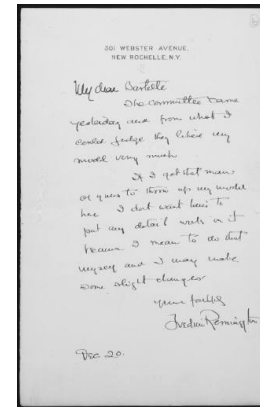 301 WEBSTER AVENUE.
NEW ROCHELLE, N.Y.
My dear Bartlett
The committee came
yesterday and from what I
could judge they liked my
model very much
If I get that man
of yours to throw up my model
here I dont want him to
put any detail work on it
because I mean to do that
myself and I may make
some slight changes
yours faithfully
Frederic Remington
Dec 20.